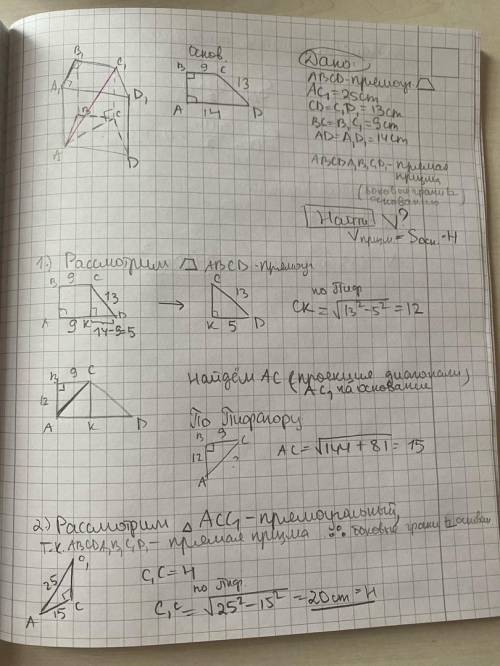 Основ.
Дано:
B₁
C₁
A₁
D₁
B
C
A
D
B 9 C
13
A 14 D
ABCD-прямоуг.
AC₁=25cm
CD=C₁D₁=13cm
BC=B₁C₁=9cm
AD=A₁D₁=14cm
ABCDA₁B₁C₁D₁-прямая
призма
(боковые грани ⊥
основанию)
Найти V?
Vпризм=Sосн.·H
1.) Рассмотрим ABCD-прямоуг
B 9 C
13
A 9 K D
14-9=5
→
C
13
K 5 D
по Пиф
CK=√13²-5²=12
B 9 C
12
A K D
Найдём AC (проекция диагонали)
AC₁ на основание
По Пифагору
B 9 C
12
?
A
AC=√144+81=15
2) Рассмотрим △ACC₁-прямоугольный,
т.к. ABCDA₁B₁C₁D₁-прямая призма ∴ боковые грани ⊥ основан
C₁
25
A 15 C
C₁C=H
по Пиф.
C₁C=√25²-15²=20cm=H